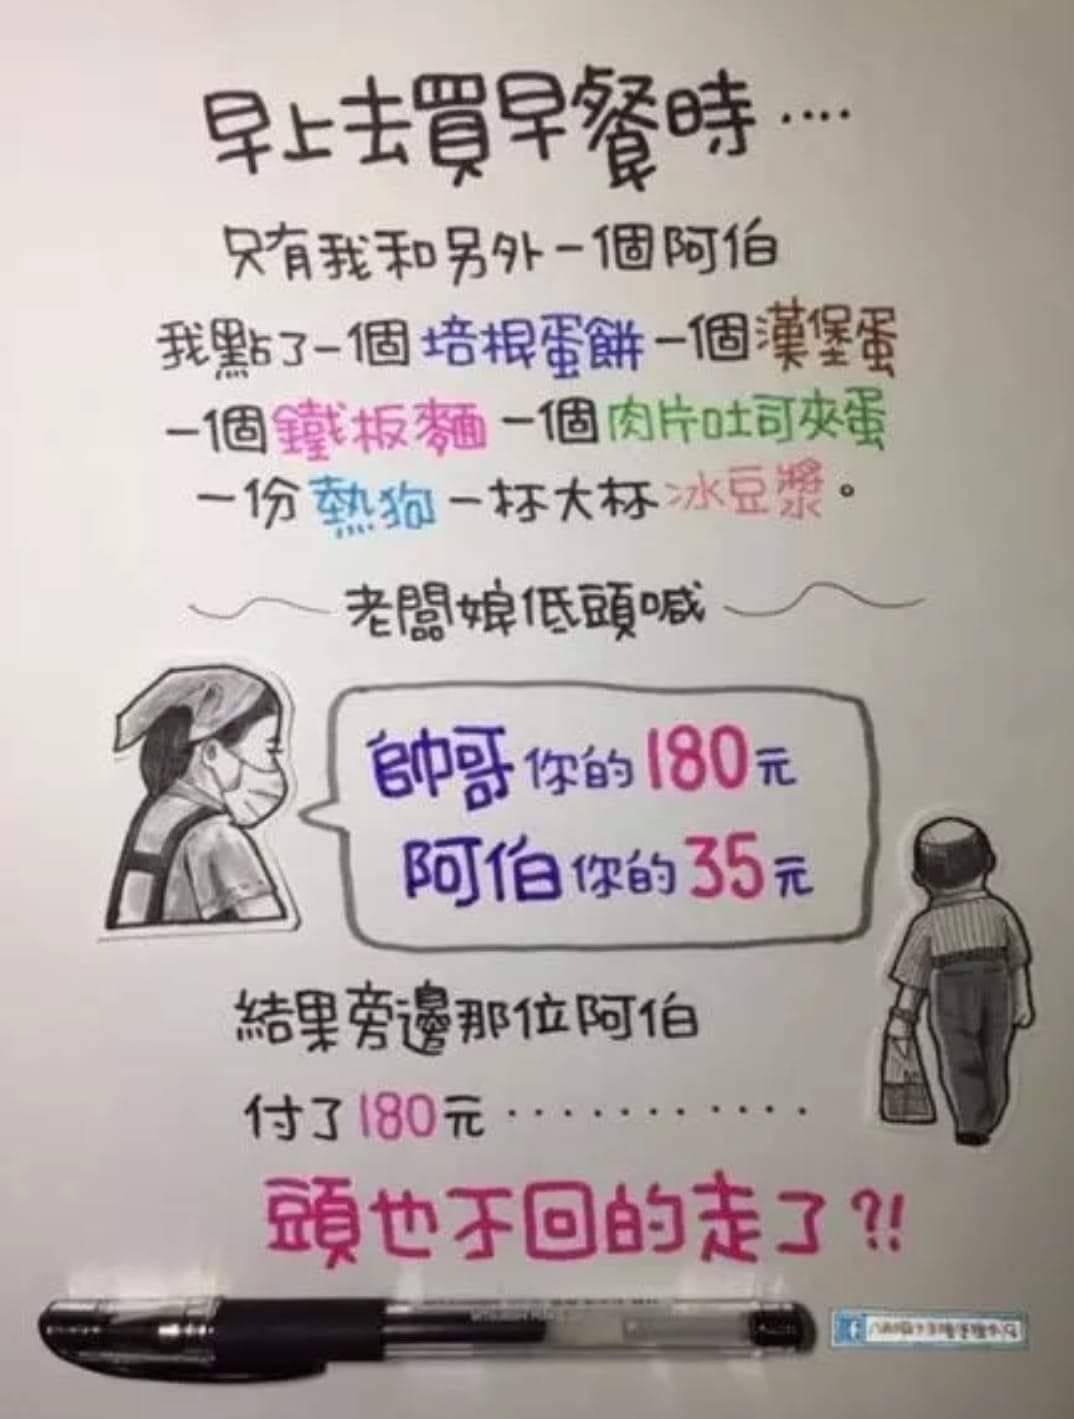 早上去買早餐時....
只有我和另外一個阿伯
我點了一個培根蛋餅一個漢堡蛋
一個鐵板麵一個肉片吐司夾蛋
一份熱狗一杯大杯冰豆漿。
老闆娘低頭喊
帥哥你的180元
阿伯你的35元
結果旁邊那位阿伯
付了180元............
頭也不回的走了?!